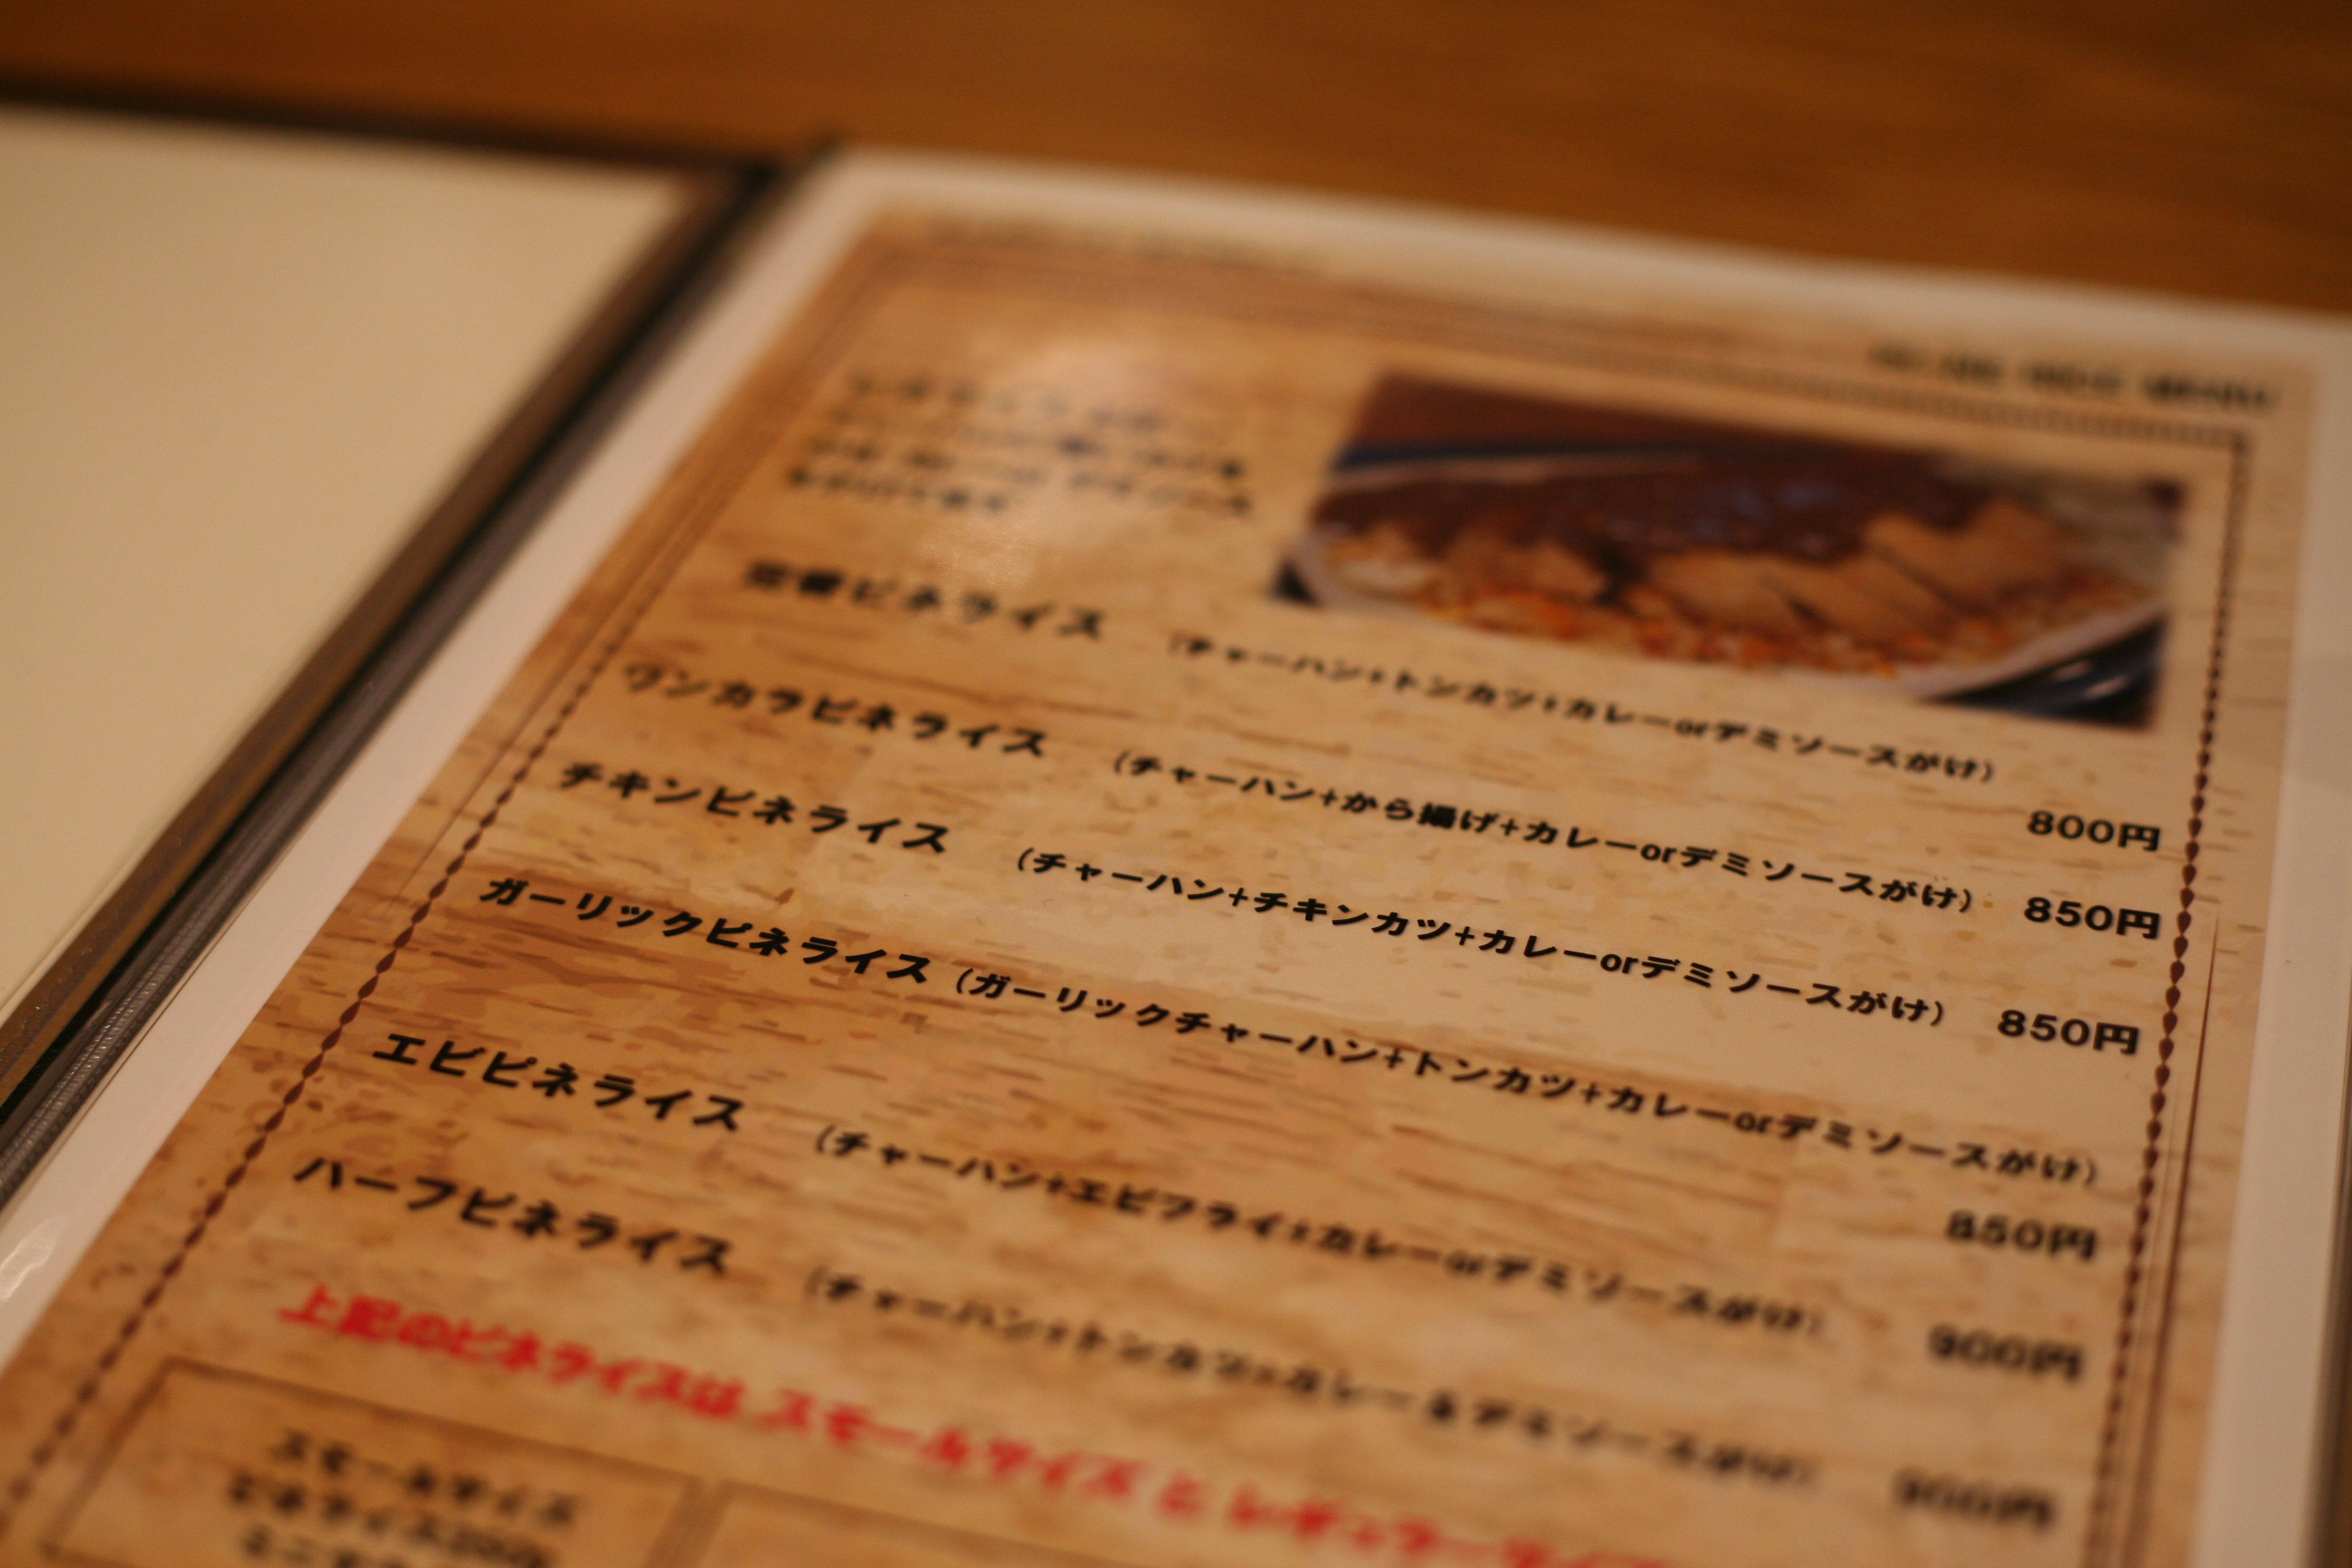 RICE MENU
定番ピネライス (チャーハン+トンカツ+カレーorデミソースがけ) 800円
ワンカラピネライス (チャーハン+から揚げ+カレーorデミソースがけ) 850円
チキンピネライス (チャーハン+チキンカツ+カレーorデミソースがけ) 850円
ガーリックピネライス (ガーリックチャーハン+トンカツ+カレーorデミソースがけ) 850円
エビピネライス (チャーハン+エビフライ+カレーorデミソースがけ) 900円
ハーフピネライス (チャーハン+トンカツ+カレー&デミソースがけ) 900円
上記のピネライスは スモールサイズ と レギュラーサイズ
スモールサイズ